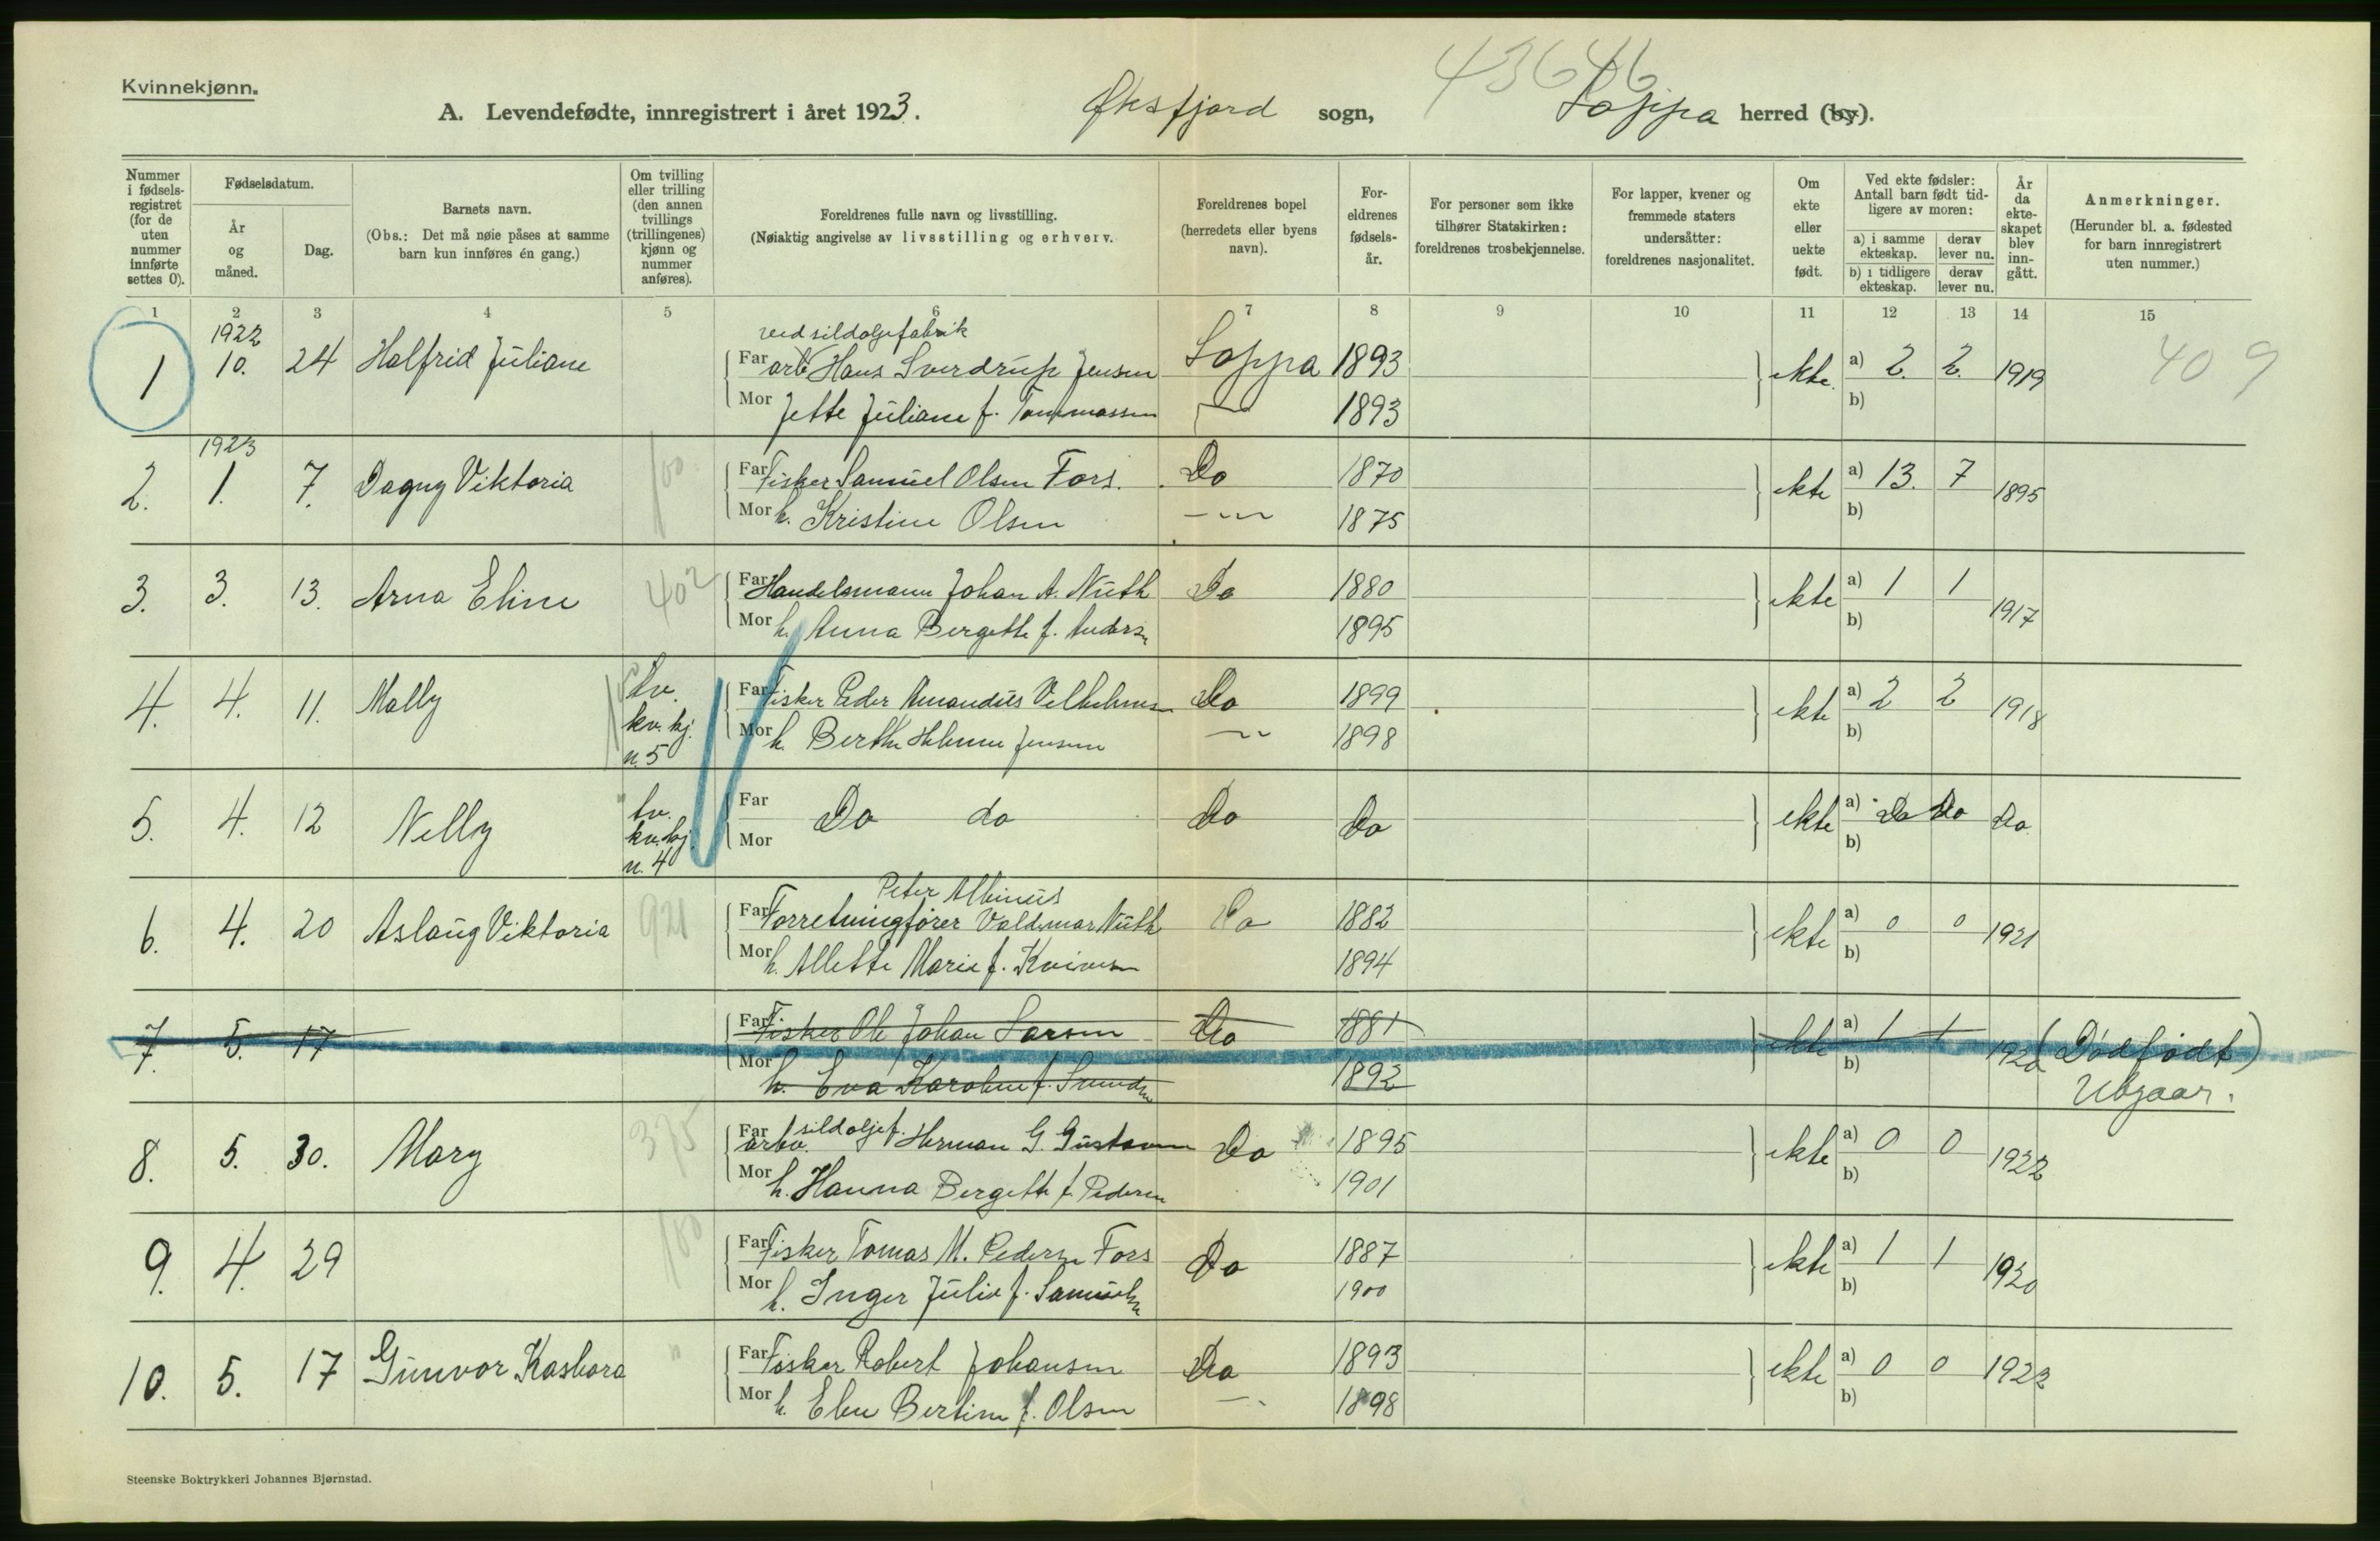 Kvinnekjønn.
43646
A. Levendefødte, innregistrert i året 1923. Øksfjord sogn, Loppa herred (by).
Nummer i fødsels-registret (for de uten nummer innførte settes 0).
Fødselsdatum.
År og måned.
Dag.
Barnets navn.
(Obs.: Det må nøie påses at samme barn kun innføres én gang.)
Om tvilling eller trilling (den annen tvillings (trillingenes) kjønn og nummer anføres).
Foreldrenes fulle navn og livsstilling.
(Nøiaktig angivelse av livsstilling og erhverv.
Foreldrenes bopel (herredets eller byens navn).
For-eldrenes fødsels-år.
For personer som ikke tilhører Statskirken: foreldrenes trosbekjennelse.
For lapper, kvener og fremmede staters undersåtter: foreldrenes nasjonalitet.
Om ekte eller uekte født.
Ved ekte fødsler: Antall barn født tid-ligere av moren:
a) i samme ekteskap. derav lever nu.
b) i tidligere ekteskap. derav lever nu.
År da ekte-skapet blev inn-gått.
Anmerkninger.
(Herunder bl. a. fødested for barn innregistrert uten nummer.)
1 2 3 4 5 6 7 8 9 10 11 12 13 14 15
1922 ved sildoljefabrik
1 10. 24 Halfrid Juliane Far arb. Hans Sverdrup Jensen Loppa 1893 ekte. a) 2. 2. 1919 409
Mor Jette Juliane f. Tommassen 1893 b)
1923
2. 1. 7. Dagny Viktoria 100 Far Fisker Samuel Olsen Fors. Do 1870 ekte a) 13. 7 1895
Mor h. Kristine Olsen 1875 b)
3. 3. 13. Arna Eline 402 Far Handelsmann Johan A. Nuth Do 1880 ekte a) 1 1 1917
Mor h. Anna Bergette f. Anders. 1895 b)
4. 4. 11. Mally tv. kv. kj. n. 5 Far Fisker Peder Amandus Vilhelmsen Do 1899 ekte a) 2 2 1918
Mor h. Berthe Helmine Jensen 1898 b)
5. 4. 12 Nelly tv. kv. kj. n. 4 Far Do do Do Do ekte a) Do Do Do
Mor b)
Peter Albinus
6. 4. 20 Aslaug Viktoria 921 Far Forretningfører Valdemar Nuth Do 1882 ekte a) 0 0 1921
Mor h. Allette Marie f. Kvivesen 1894 b)
7. 5. 17 Far Fisker Ole Johan Larsen Do 1881 ekte a) 1 1 1920 (Dødfødt)
Mor h. Eva Karoline f. 1892 b) Utgaar.
8. 5. 30. Mary 375 Far arbv. sildoljef. Herman G. Gustavsen Do 1895 ekte a) 0 0 1922
Mor h. Hanna Bergette f. Pedersen 1901 b)
9. 4. 29 100 Far Fisker Tomas M. Pedersen Fors Do 1887 ekte a) 1 1 1920
Mor h. Inger Julie f. Samuelsen 1900 b)
10. 5. 17 Gunvor Kasbora " Far Fisker Robert Johansen Do 1893 ekte a) 0 0 1922
Mor h. Elen Bertine f. Olsen 1898 b)
Steenske Boktrykkeri Johannes Bjørnstad.